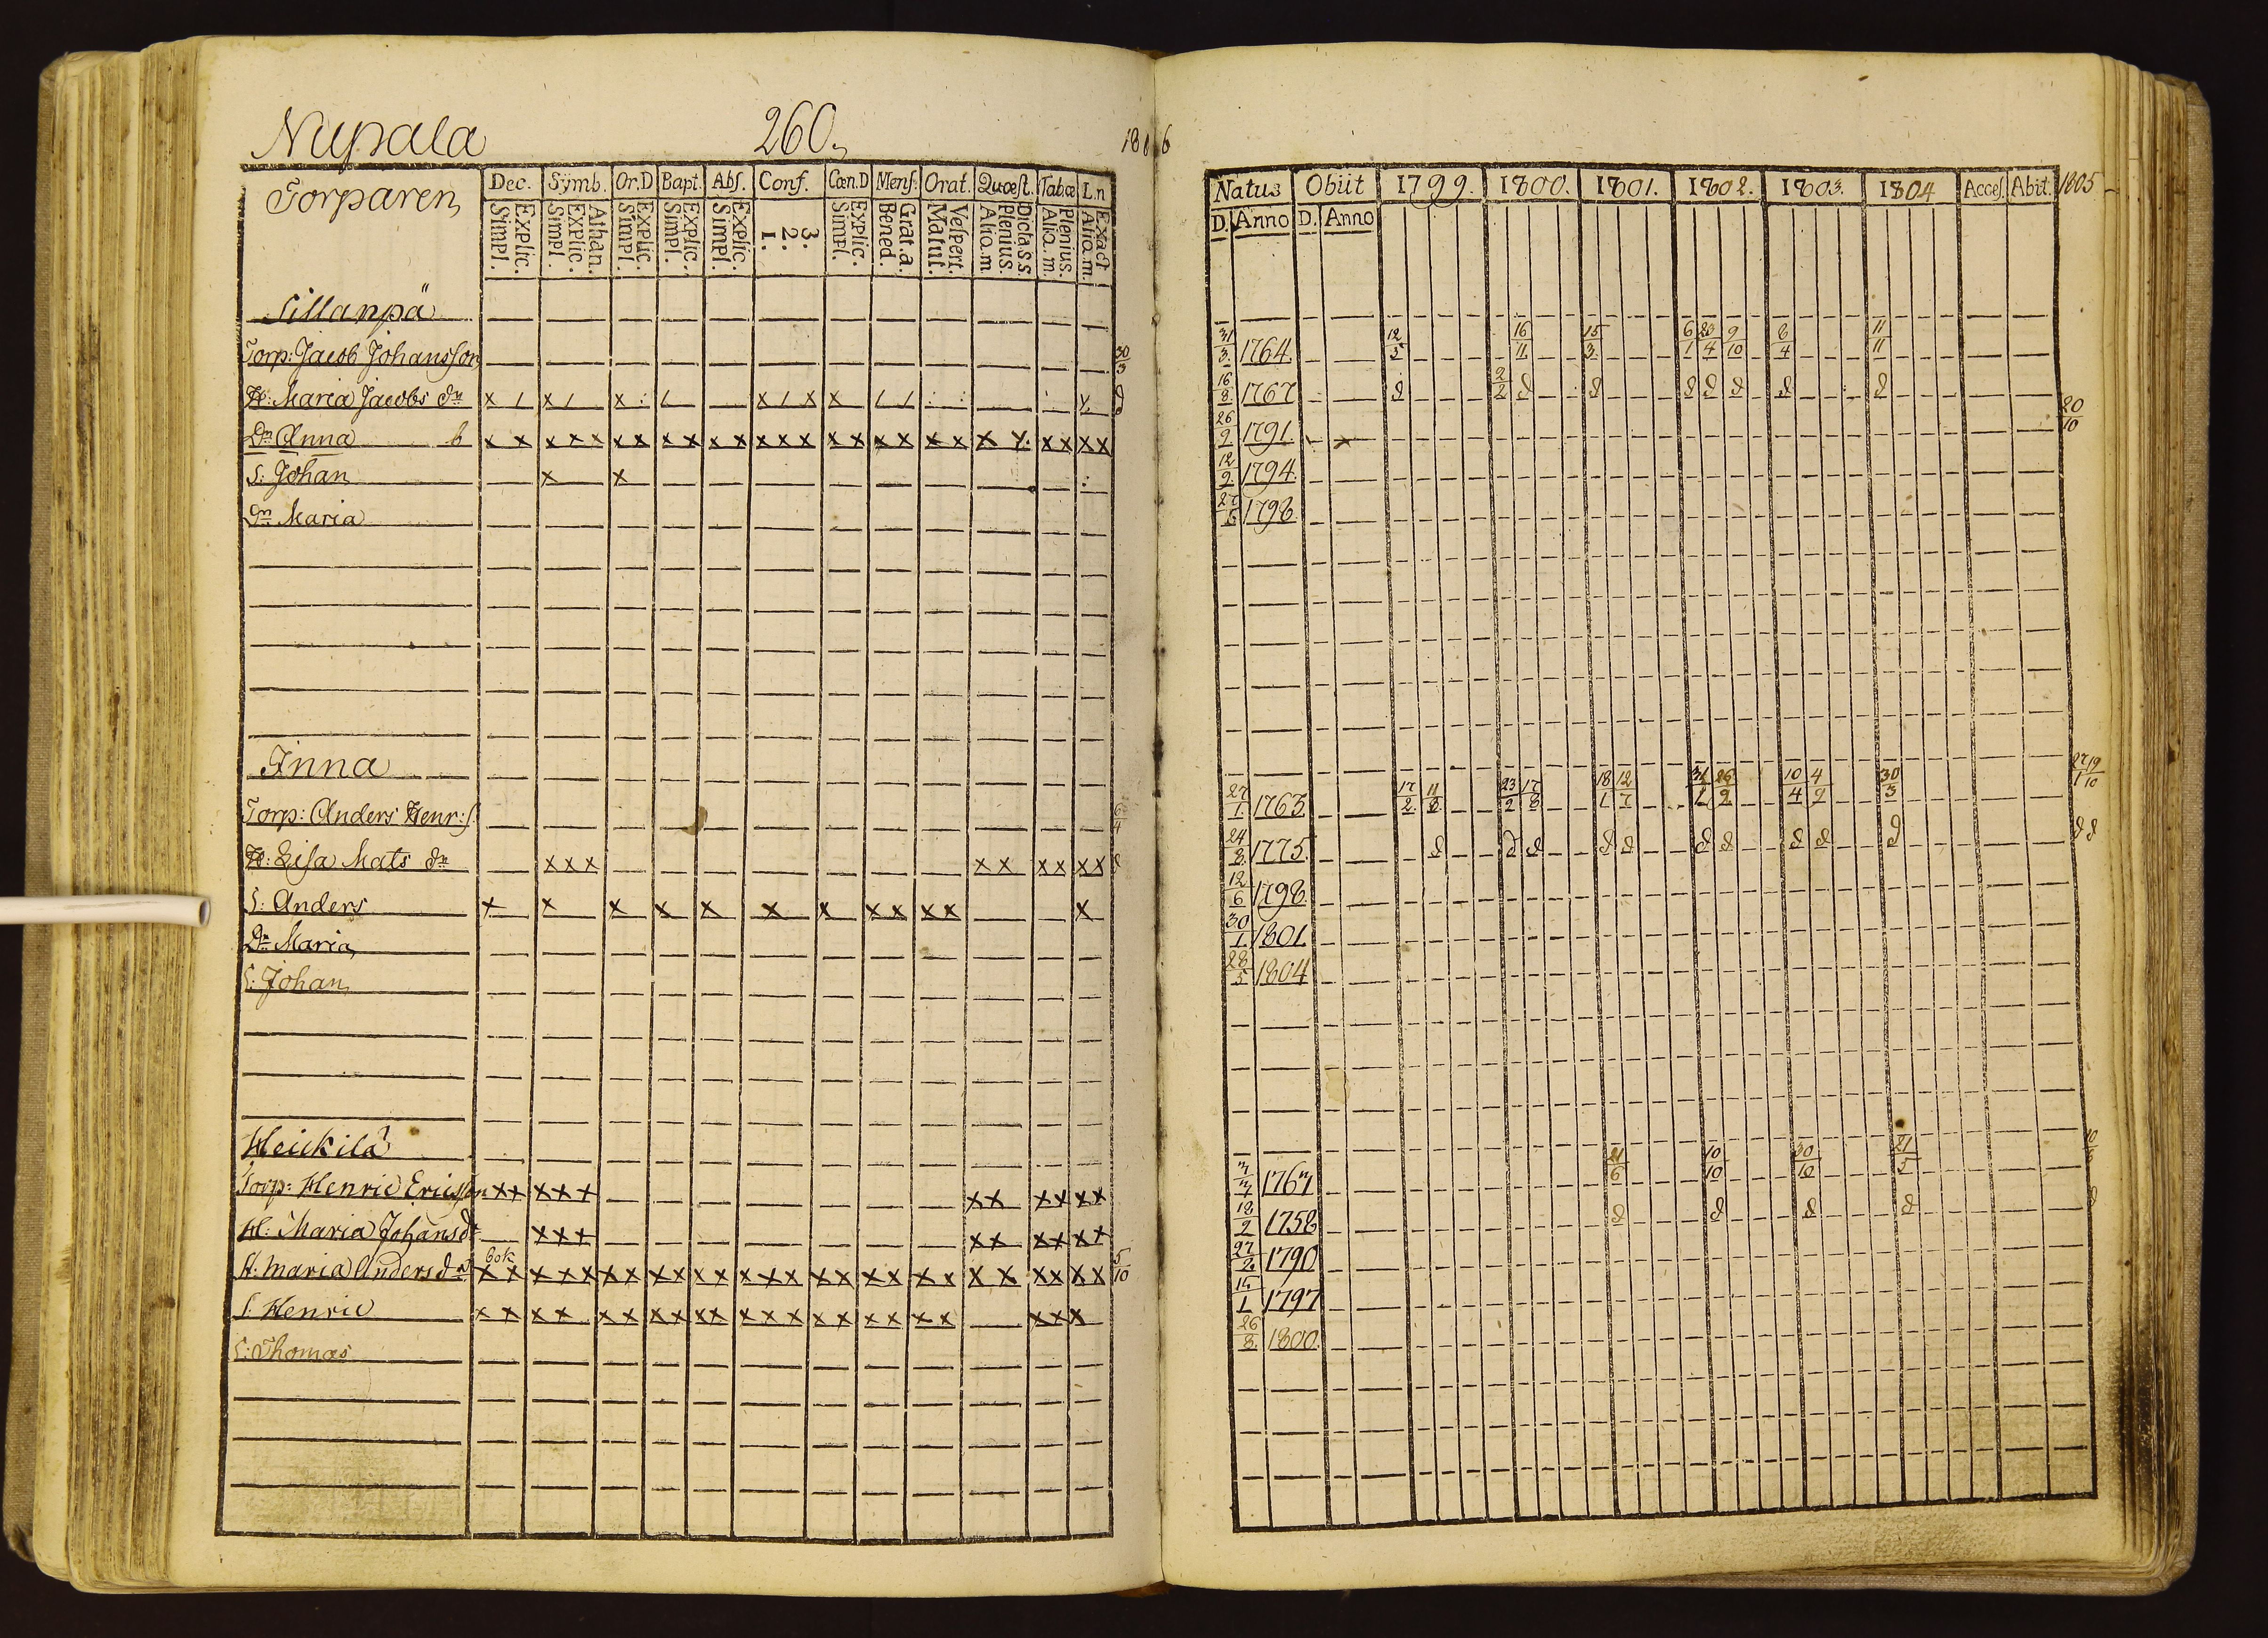 Nupala 260. 1806
Torparen
Dec. Sÿmb. Or.D Bapt. Abſ. Conf. Cœn.D Menſ. Orat. Quœſt. Tabœ L.n
Explic. Simpl. Athan. Explic. Simpl. Explic. Simpl. Explic. Simpl. Explic. Simpl. 3. 2. 1. Explic. Simpl. Grat.a. Bened. Veſpert. Matut. Dicta.s.s Plenius. Alia.m. Plenius. Alia.m. Exact Alia.m.
Natus Obiit 1799. 1800. 1801. 1802. 1803. 1804 Acceſ. Abit. 1805
D. Anno D. Anno
Sillanpä
Torp: Jacob Johansson 30/3 31/3. 1764. 12/5 16/11 15/3 6/1 20/4 9/10 8/4 11/11
H: Maria Jacobs dr x / x / x : / x / x x / / : : x. d 16/8. 1767 d 2/2 d d d d d d d
Dr Anna b x x x x x x x x x x x x x x x x x x x x x x x x x x x 26/9 1791. 20/10
S: Johan x x 12/9 1794.
Dr Maria 1798.
Inna
Torp: Anders Henr: s. 6/4 27/1. 1763. 17/2 11/8 23/2 17/8 18/1 12/7 31/1 26/9 10/4 4/9 30/3 27/1 19/10
H: Lisa Mats dr x x x x x x x x x d 24/8. 1775. d d d d d d d d d d d d
S: Anders x x x x x x x x x x x x 12/6 1798.
Dr Maria 30/1. 1801.
S: Johan 28/5 1804
Heickilä
Torp: Henric Ericsson x x x x x x x x x x x 1767 21/6 10/10 30/10 21/5
H: Maria Johansdr x x x x x x x x x 18/2 1758 d d d d d
bok
H. Maria Andersdr x x x x x x x x x x x x x x x x x x x x x x x x x x x 5/10 27/2. 1790
S: Henric x x x x x x x x x x x x x x x x x x x x x x 15/1 1797
S: Thomas 26/8. 1800.